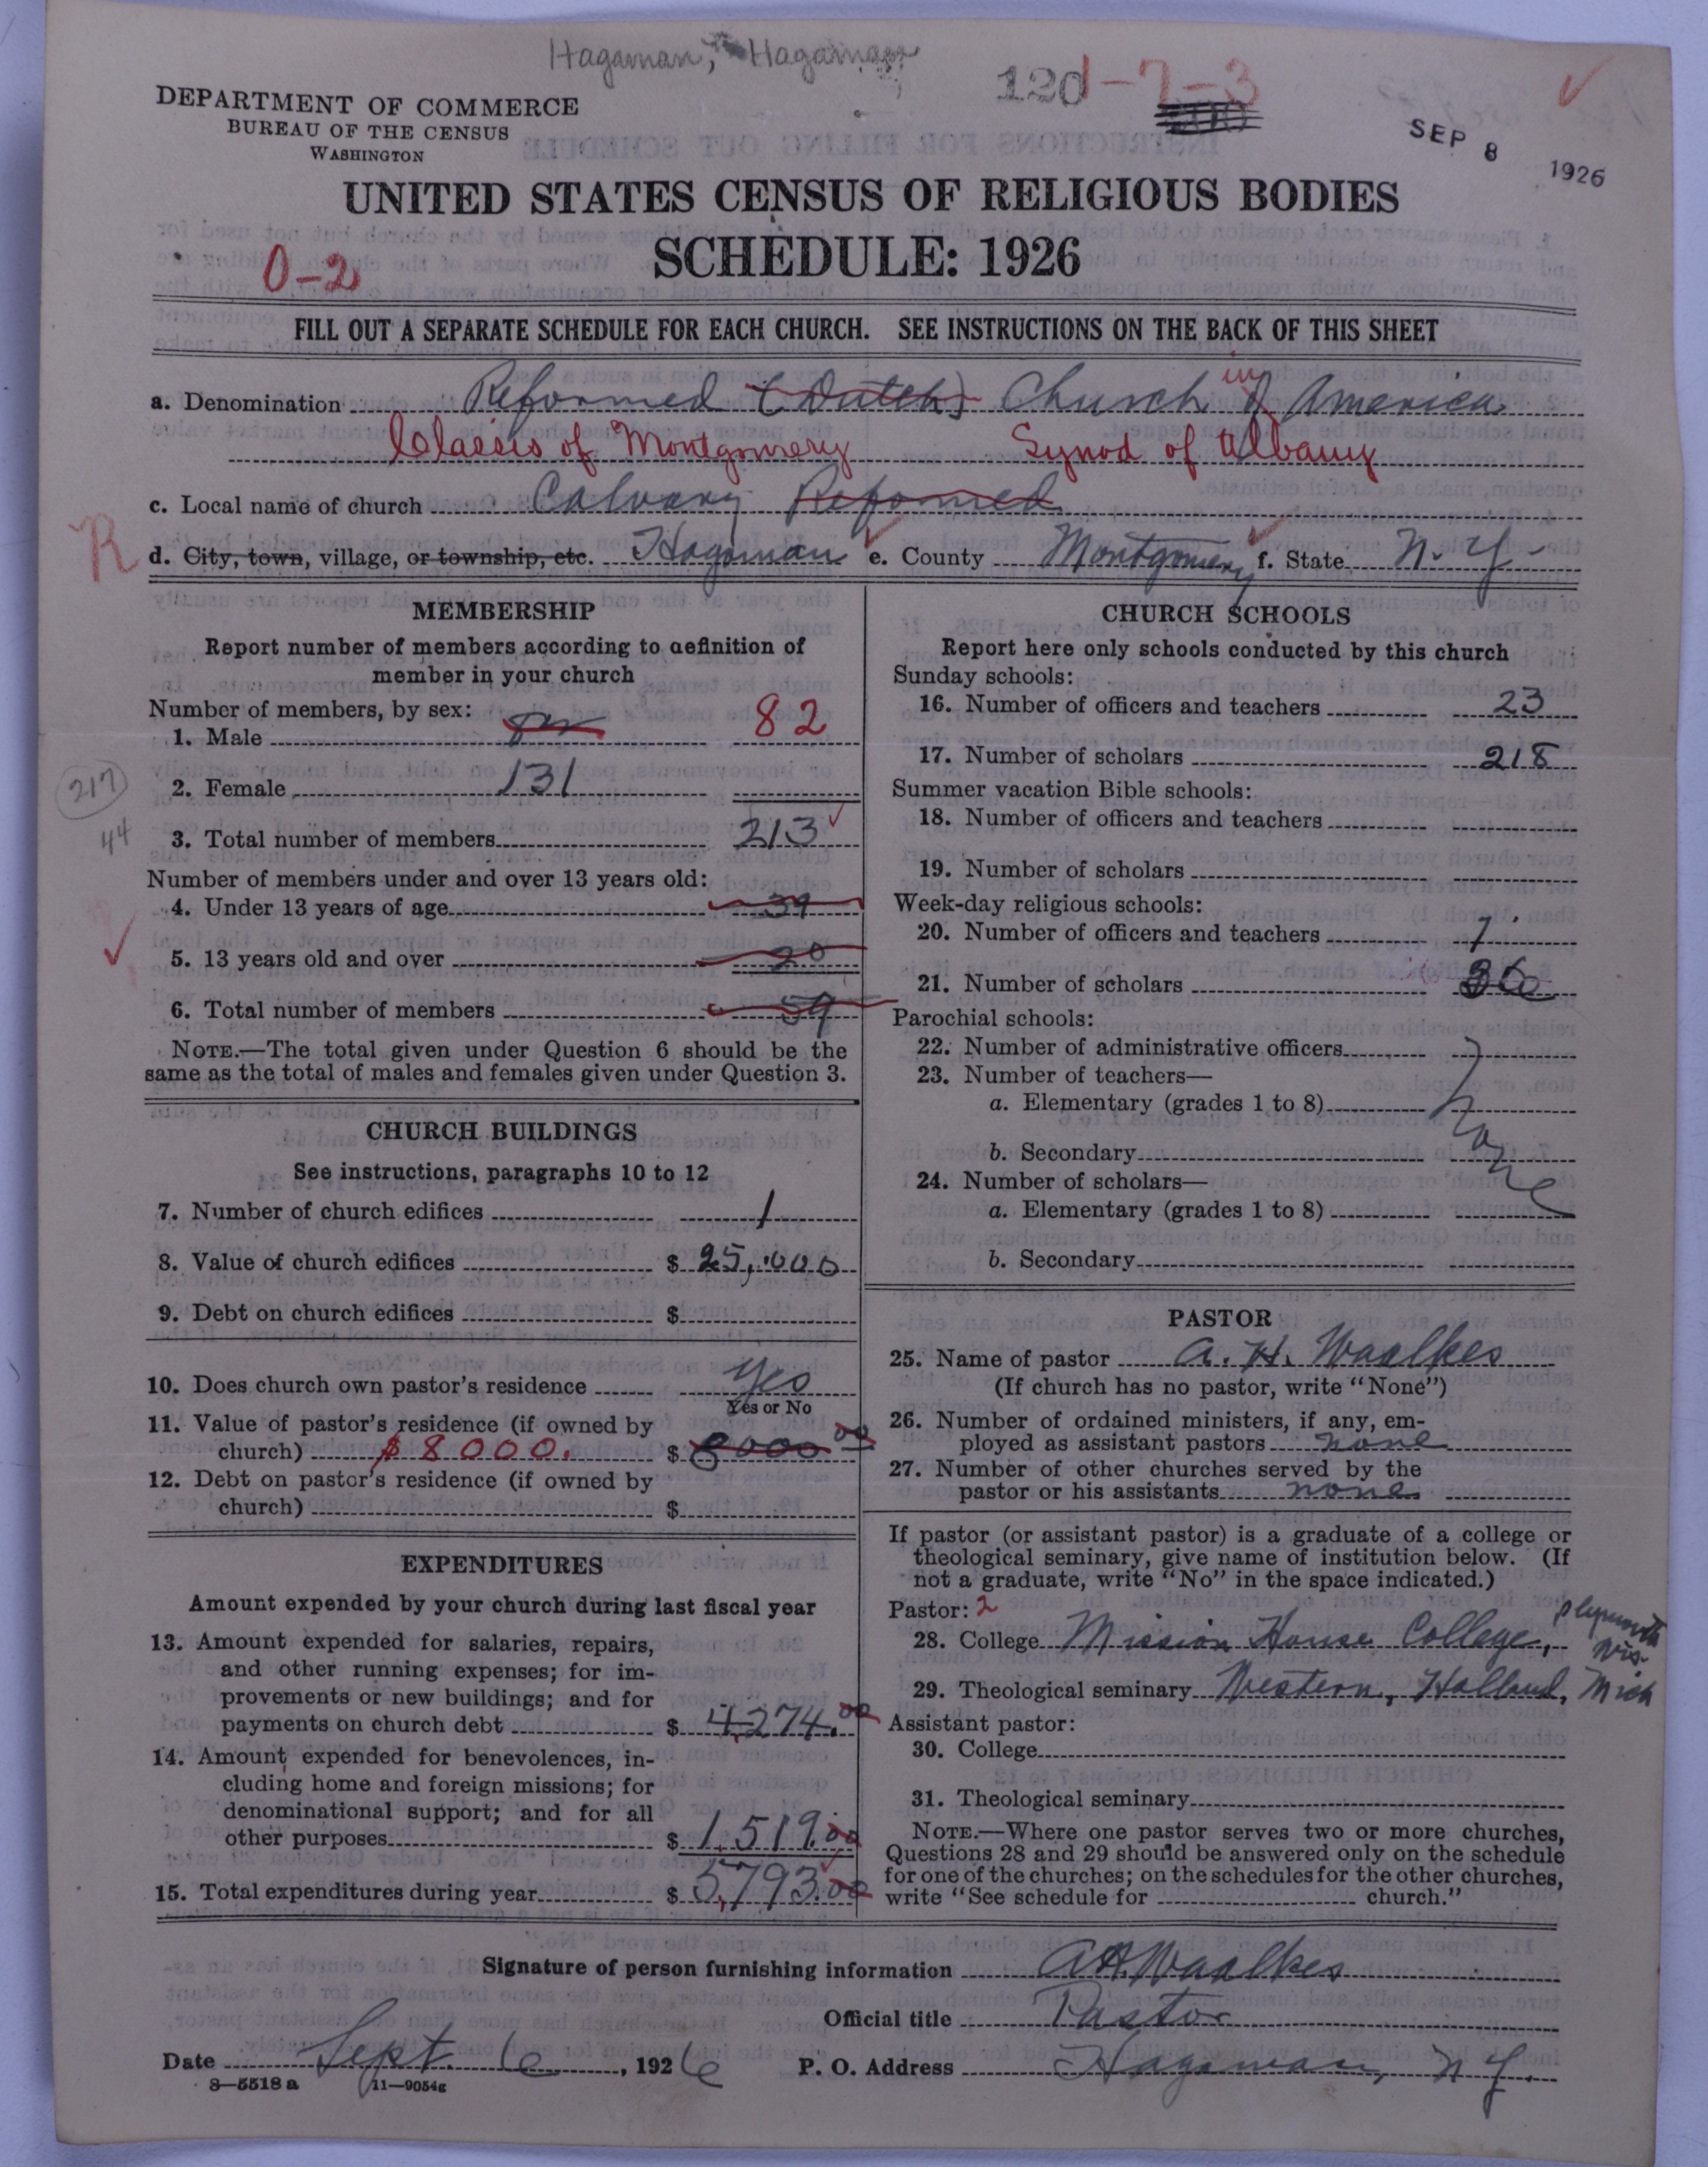 Hagaman, Hagaman
1201-7-3
DEPARTMENT OF COMMERCE
BUREAU OF THE CENSUS
WASHINGTON
SEP 8 1926
UNITED STATES CENSUS OF RELIGIOUS BODIES
SCHEDULE: 1926
0-2
FILL OUT A SEPARATE SCHEDULE FOR EACH CHURCH. SEE INSTRUCTIONS ON THE BACK OF THIS SHEET
a. Denomination Reformed (Dutch) Church in America
Classis of Montgomery Synod of Albany
c. Local name of church Calvary Reformed
R
d. City, town, village, or township, etc. Hagaman e. County Montgomery f. State N. Y.
MEMBERSHIP
Report number of members according to definition of
member in your church
Number of members, by sex:
1. Male 82
2. Female 131
217
44
3. Total number of members 213
Number of members under and over 13 years old:
4. Under 13 years of age 39
5. 13 years old and over 20
6. Total number of members 59
NOTE.—The total given under Question 6 should be the
same as the total of males and females given under Question 3.
CHURCH BUILDINGS
See instructions, paragraphs 10 to 12
7. Number of church edifices 1
8. Value of church edifices $ 25,000
9. Debt on church edifices $
10. Does church own pastor's residence Yes
Yes or No
11. Value of pastor's residence (if owned by
church) $8000. $ 8000 00
12. Debt on pastor's residence (if owned by
church) $
EXPENDITURES
Amount expended by your church during last fiscal year
13. Amount expended for salaries, repairs,
and other running expenses; for im-
provements or new buildings; and for
payments on church debt $ 4,274.00
14. Amount expended for benevolences, in-
cluding home and foreign missions; for
denominational support; and for all
other purposes $ 1,519.00
15. Total expenditures during year $ 5,793.00
CHURCH SCHOOLS
Report here only schools conducted by this church
Sunday schools:
16. Number of officers and teachers 23
17. Number of scholars 218
Summer vacation Bible schools:
18. Number of officers and teachers
19. Number of scholars
Week-day religious schools:
20. Number of officers and teachers 7
21. Number of scholars 36
Parochial schools:
22. Number of administrative officers
23. Number of teachers—
a. Elementary (grades 1 to 8)
None
b. Secondary
24. Number of scholars—
a. Elementary (grades 1 to 8)
b. Secondary
PASTOR
25. Name of pastor A. H. Waalkes
(If church has no pastor, write "None")
26. Number of ordained ministers, if any, em-
ployed as assistant pastors none
27. Number of other churches served by the
pastor or his assistants none
If pastor (or assistant pastor) is a graduate of a college or
theological seminary, give name of institution below. (If
not a graduate, write "No" in the space indicated.)
Pastor: 2
28. College Mission House College, Plymouth Wis.
29. Theological seminary Western, Holland, Mich
Assistant pastor:
30. College
31. Theological seminary
NOTE.—Where one pastor serves two or more churches,
Questions 28 and 29 should be answered only on the schedule
for one of the churches; on the schedules for the other churches,
write "See schedule for church."
Signature of person furnishing information A H. Waalkes
Official title Pastor
Date Sept. 6, 1926 P. O. Address Hagaman, N.Y.
8—5518 a 11—9054g